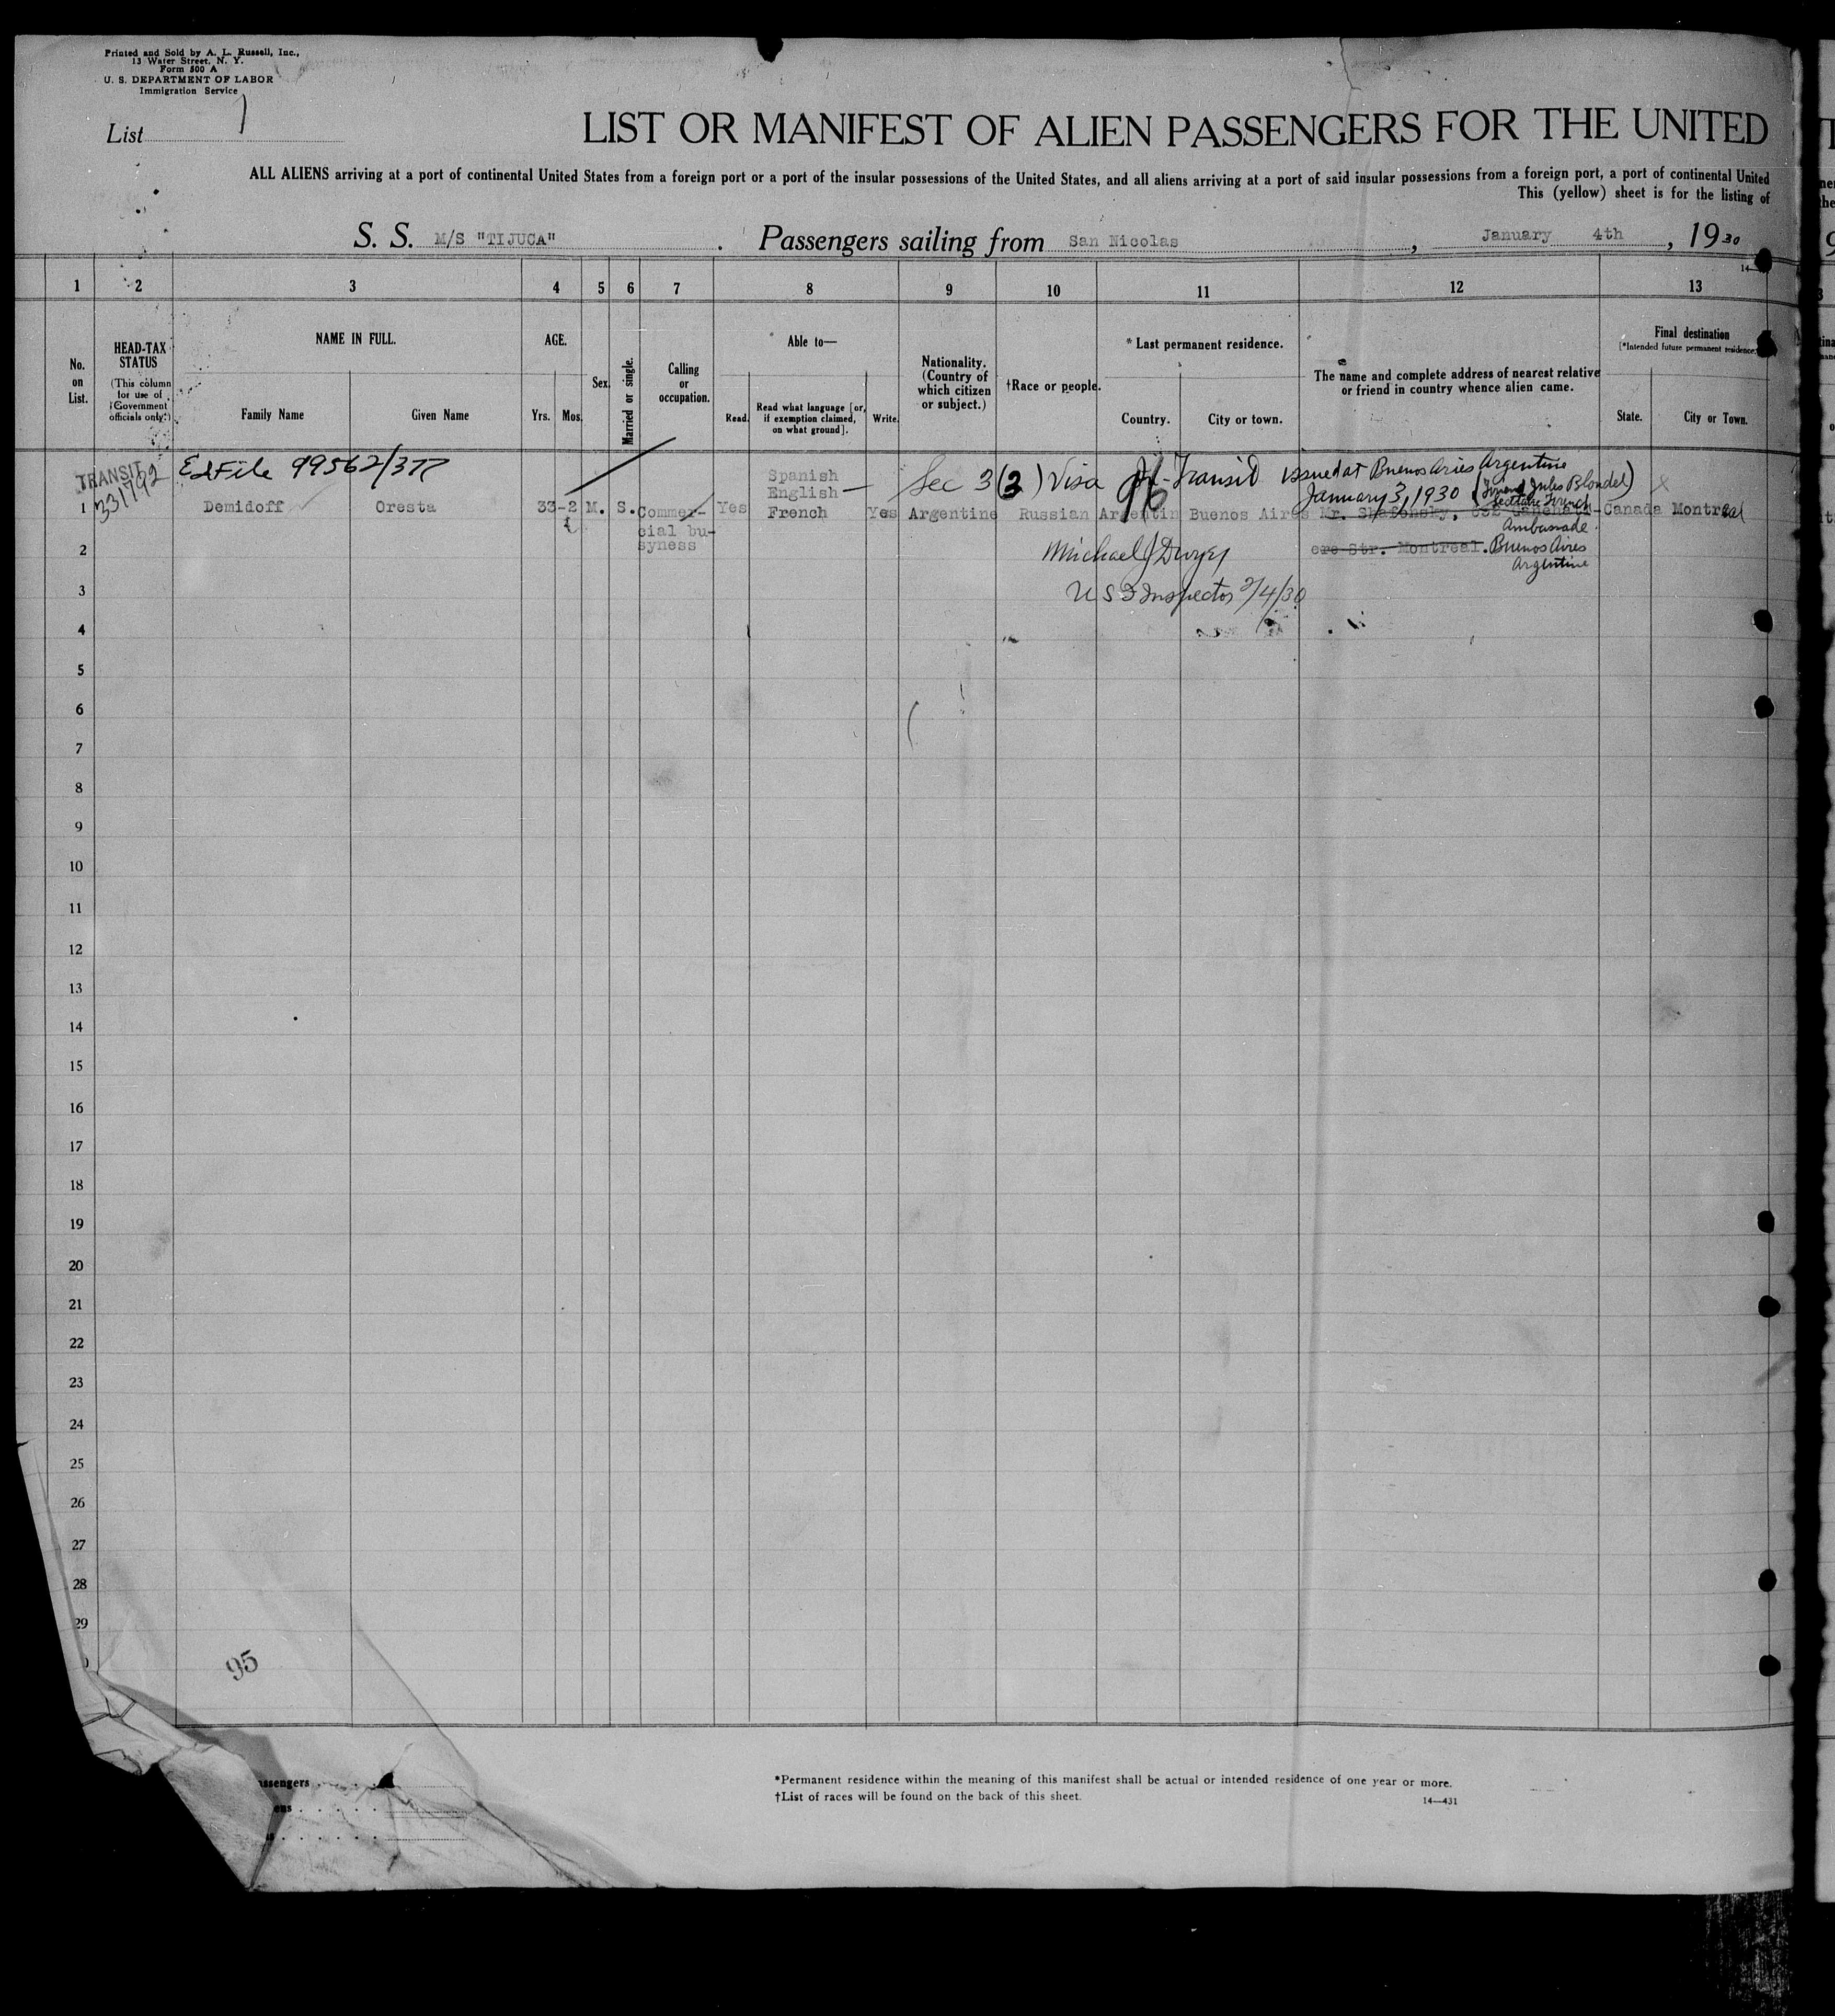 Printed and Sold by A. L. Russell, Inc.,
13 Water Street, N. Y.
Form 500 A
U. S. DEPARTMENT OF LABOR
Immigration Service
List 1
LIST OR MANIFEST OF ALIEN PASSENGERS FOR THE UNITED
ALL ALIENS arriving at a port of continental United States from a foreign port or a port of the insular possessions of the United States, and all aliens arriving at a port of said insular possessions from a foreign port, a port of continental United
This (yellow) sheet is for the listing of
S. S. M/S "TIJUCA" . Passengers sailing from San Nicolas , January 4th , 1930
1 2 3 4 5 6 7 8 9 10 11 12 13
No. on List.
HEAD-TAX STATUS
(This column for use of Government officials only.)
NAME IN FULL.
Family Name Given Name
AGE.
Yrs. Mos.
Sex.
Married or single.
Calling or occupation.
Able to—
Read. Read what language [or, if exemption claimed, on what ground]. Write.
Nationality. (Country of which citizen or subject.)
†Race or people.
*Last permanent residence.
Country. City or town.
The name and complete address of nearest relative or friend in country whence alien came.
Final destination
(*Intended future permanent residence.)
State. City or Town.
TRANSIT
331792
File 99562/377
Sec 3(3) Visa Transit issued at Buenos Aries Argentine
January 3, 1930 (Friend Jules Blondel)
1 Demidoff Oresta 33-2 M. S. Commer-
cial bu-
syness
Yes
Spanish
English
French
Yes Argentine Russian Argentin Buenos Aires Mr.
Canada Montreal
Ambassade
ere Str. Montreal. Buenos Aires
Argentine
Michael J Dwyer
U S I Inspector 2/4/30
2
3
4
5
6
7
8
9
10
11
12
13
14
15
16
17
18
19
20
21
22
23
24
25
26
27
28
29
95
assengers
ens
*Permanent residence within the meaning of this manifest shall be actual or intended residence of one year or more.
†List of races will be found on the back of this sheet.
14—431